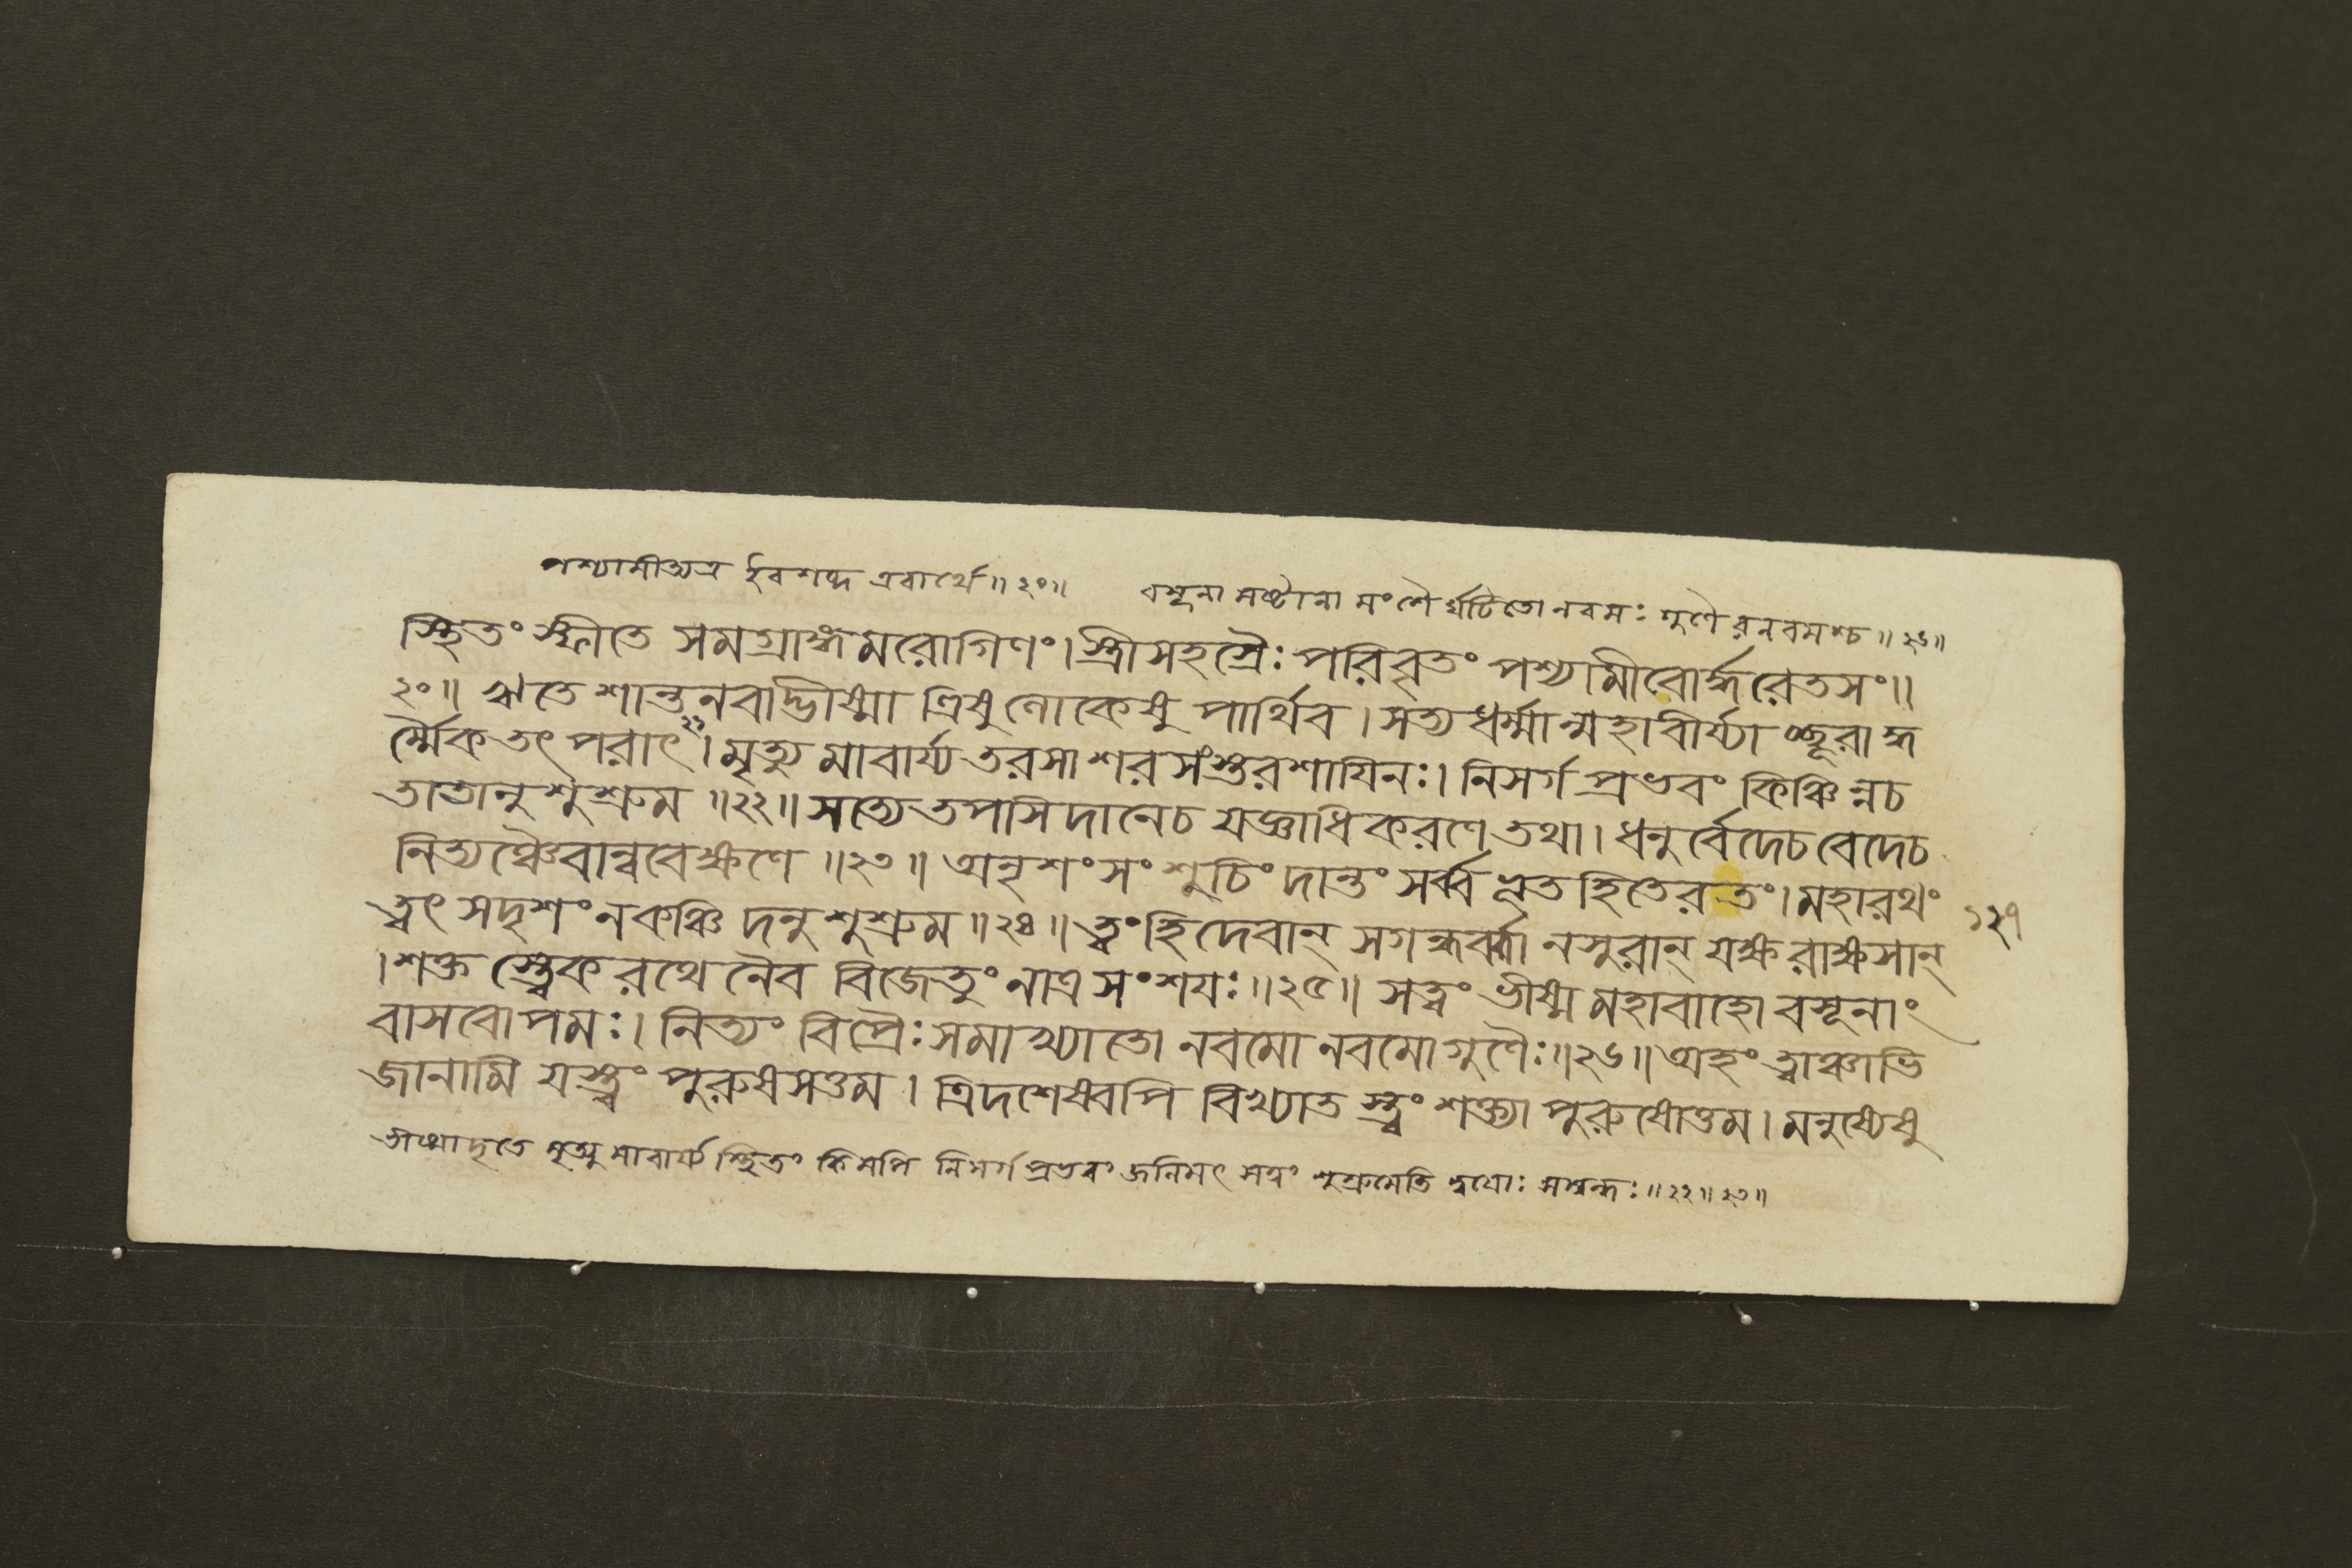 পশ্যামীঅত্র ইবশব্দ এবার্থে॥২০॥ বসূনা মষ্টানা মংশৈ র্ঘটিতোনবমঃ গুণৈ রনবমশ্চ॥২৬॥
স্থিতং স্ফীতে সমগ্রাঙ্গমরোগিণং। স্ত্রীসহস্রৈঃ পরিবৃতং পশ্যামীবোর্দ্ধরেতসং॥
২০॥ ঋতে শান্তনবাদ্ভীষ্মা ত্রিষুলোকেষু পার্থিব। সত্যধর্ম্মান্মহাবীর্য্যা চ্ছূরাদ্ধ
র্ম্মৈকতৎপরাৎ২১। মৃত্যুমাবার্য্য তরসা শরসংস্তরশায়িনঃ। নিসর্গ প্রভবং কিঞ্চিন্নচ
তাতানুশুশ্রুম॥২২॥ সত্যে তপসি দানেচ যজ্ঞাধিকরণে তথা। ধনুর্বেদেচ বেদেচ
নিত্যঞ্চৈবান্ববেক্ষণে॥২৩॥ অনৃশংসং শুচিং দান্তং সর্ব্বভূতহিতেরতং। মহারথং
ত্বৎ সদৃশং নকঞ্চি দনুশুশ্রুম॥২৪॥ ত্বংহিদেবান্ সগন্ধর্ব্বা নসুরান্ যক্ষরাক্ষসান্
১২৭
। শক্ত স্ত্বেকরথেনৈব বিজেতুং নাত্রসংশয়ঃ॥২৫॥ সত্বং ভীষ্ম মহাবাহো বসূনাং
বাসবোপমঃ। নিত্যং বিপ্রৈঃ সমাখ্যাতো নবমো নবমোগুণৈঃ॥২৬॥ অহং ত্বাঞ্চাভি
জানামি যস্ত্বং পুরুষসত্তম। ত্রিদশেষ্বপি বিখ্যাত স্ত্বং শক্ত্যা পুরুষোত্তম। মনুষ্যেষু
ভীষ্মাদৃতে মৃত্যুমাবার্য্য স্থিতং কিমপি নিসর্গপ্রভবং জনিমৎ সত্বং শুশ্রুমেতি দ্বয়োঃ সম্বন্ধঃ॥২২॥২৩॥